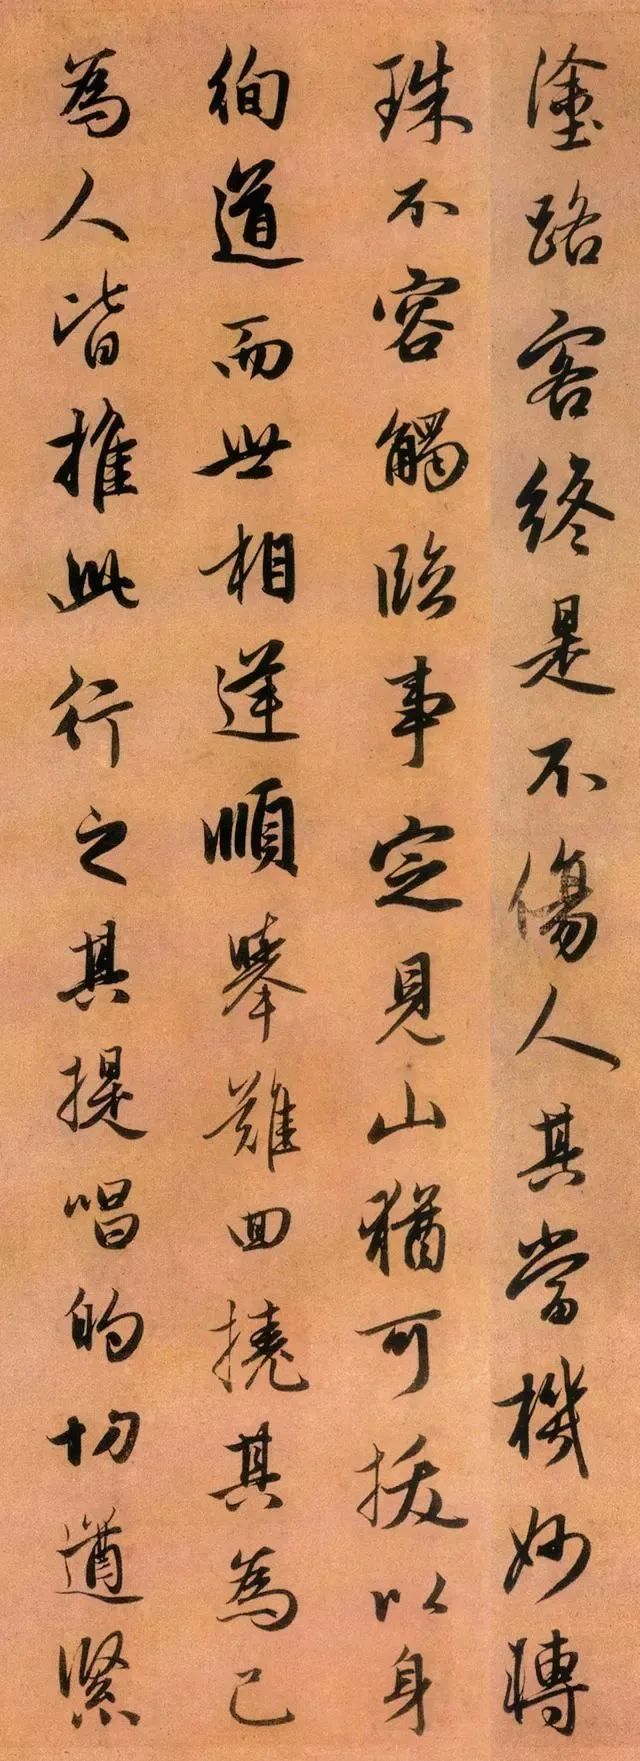 塗路客終是不傷人其當機妙轉
珠不容觸臨事定見山猶可拔以身
徇道而世相逆順舉難回撓其為己
為人皆推此行之其提唱的切遒緊